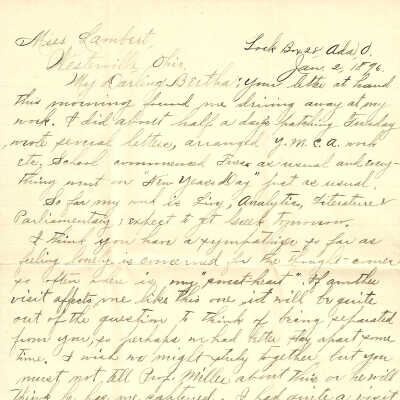 Miss Lambert,
Westerville, Ohio.
Lock Box 28 Ada O.
Jan. 2, 1896.
My Darling Bertha: your letter at hand
this morning found me driving away at my
work. I did about half a days Tuesday
wrote several letters, arranged Y.M.C.A. work
etc. School commenced as usual and every-
thing went on "New Years Day" just as usual.
So far my work is Livy, Analytics, Literature &
Parliamentary; expect to get Greek tomorrow.
I think you have a sympathizer so far as
feeling lonely is concerned for the thought comes
so often where is my "sweet-heart". If another
visit affects me like this one it will be quite
out of the question to think of being separated
from you, so perhaps we had better stay apart some
time. I wish we might study together, but you
must not tell Prof. Miller about this or he will
think he has me captured. I had quite a visit